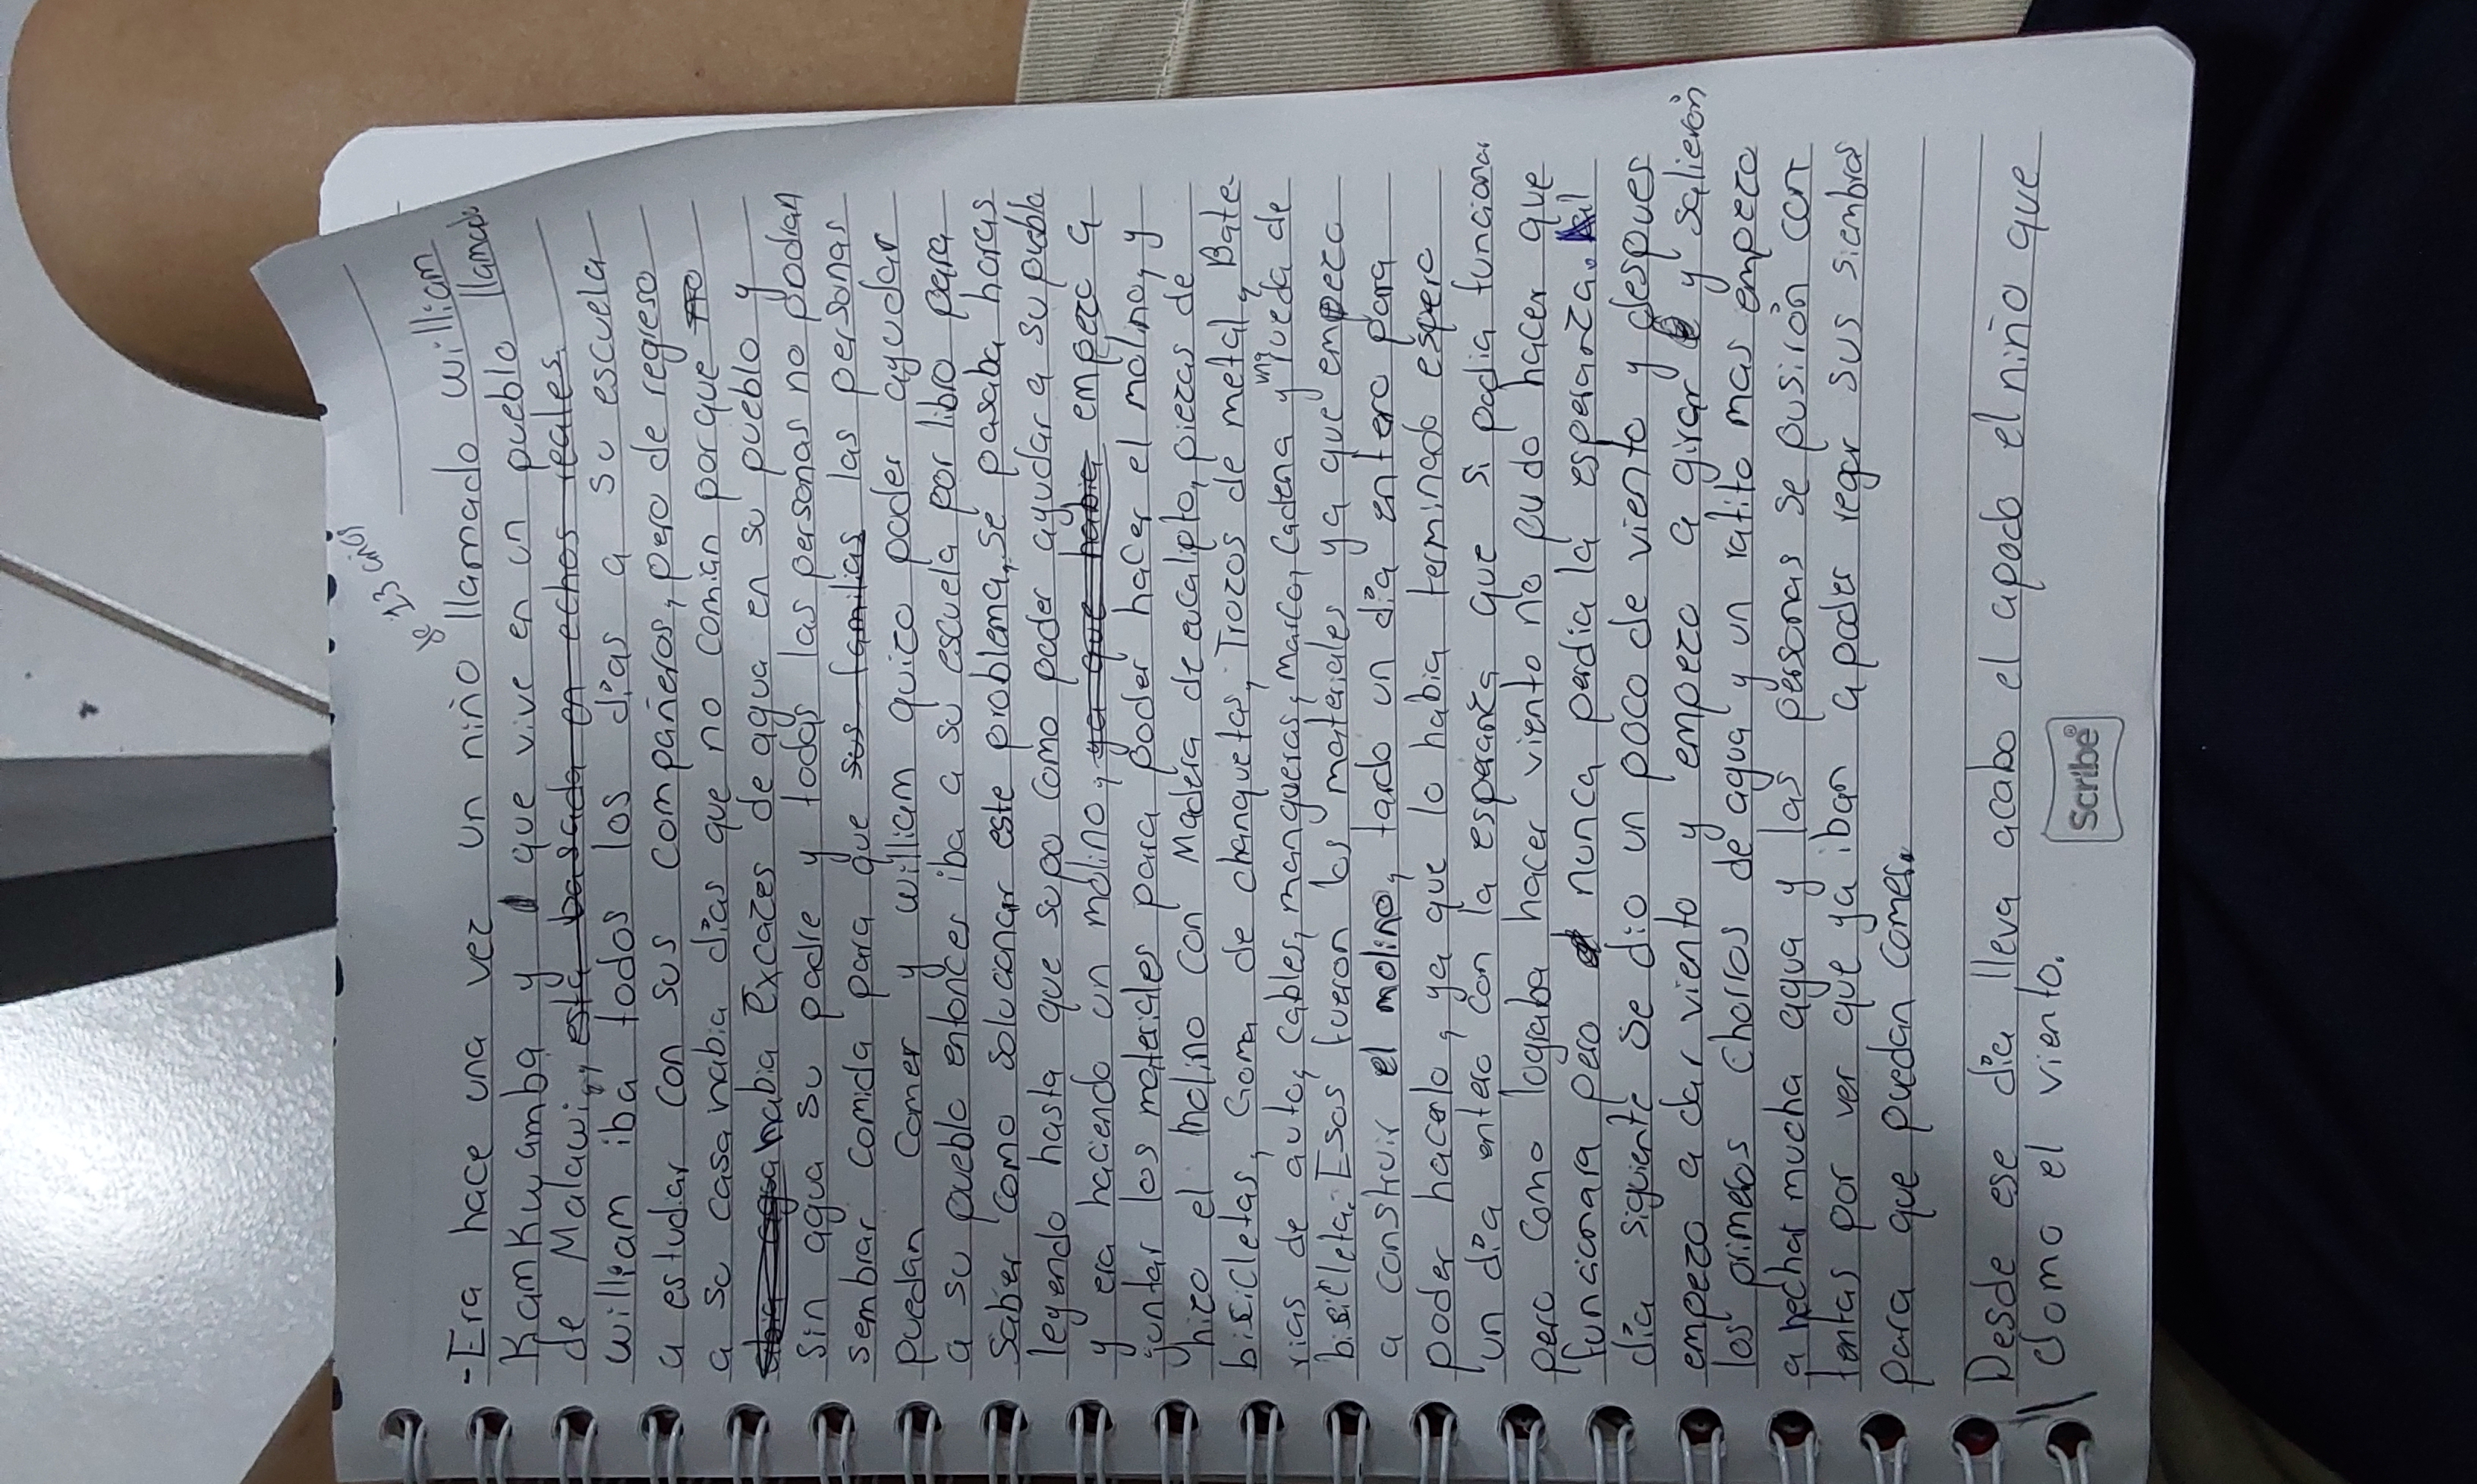 de 13 años
-Era hace una vez un niño llamado william
Kamkwamba y que vive en un pueblo llamado
de Malawi, y esta basada en echos reales.
william iba todos los dias a su escuela
a estudiar con sus compañeros, pero de regreso
a su casa habia dias que no comian porque no
habia Excazes de agua en su pueblo y
sin agua su padre y todas las personas no podan
sembrar comida para que sus familias las personas
puedan comer y william quizo poder ayudar
a su pueblo entonces iba a su escuela por libro para
Saber como solucionar este problema, se pasaba horas
leyendo hasta que supo como poder ayudar a su pueblo
y era haciendo un molino, ya que habia empezo a
juntar los materiales para poder hacer el molino, y
hizo el molino con Madera de eucalipto, piezas de
bisicletas, Goma de chanquetas, Trozos de metal, Bate-
rias de auto, cables, mangueras, marco, cadena y una rueda de
bisicleta. Esos fueron los materiales ya que empezo
a construir el molino, tardo un dia entero para
poder hacerlo, ya que lo habia terminado espero
un dia entero con la esperanza que si podia funcionar
pero como lograba hacer viento no pudo hacer que
funcionara pero nunca perdia la esperanza. Al
dia siguiente Se dio un poco de viento y despues
empezo a dar viento y empezo a girar y salierón
los primeros chorros de agua y un ratito mas empezo
a hechar mucha agua y las personas se pusirón con
tentas por ver que ya iban a poder regar sus siembras
para que puedan comer.
Desde ese dia lleva acabo el apodo el niño que
domo el viento.
Scribe®